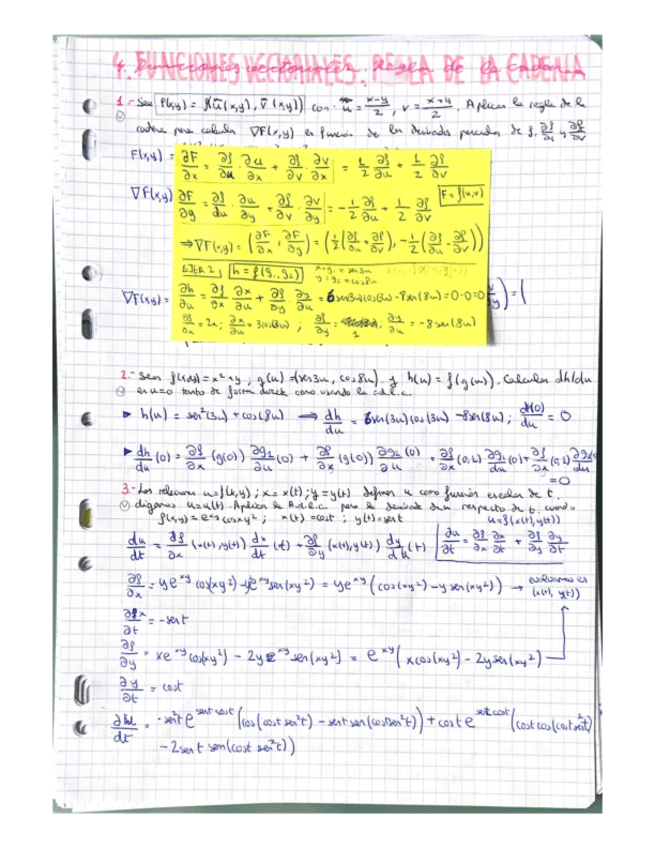 4. FUNCIONES VECTORIALES. REGLA DE LA CADENA
1.- Sea F(x,y) = f(u(x,y), v(x,y)) con u = x-y/2, v = x+y/2. Aplicar la regla de la
cadena para calcular ∇F(x,y) en función de las derivadas parciales de f, ∂f/∂u y ∂f/∂v
F(x,y) =
∂F/∂x = ∂f/∂u · ∂u/∂x + ∂f/∂v · ∂v/∂x = 1/2 ∂f/∂u + 1/2 ∂f/∂v
∇F(x,y)
∂F/∂y = ∂f/du · ∂u/∂y + ∂f/∂v · ∂v/∂y = -1/2 ∂f/∂u + 1/2 ∂f/∂v
F = f(u,v)
⇒ ∇F(x,y) = (∂F/∂x, ∂F/∂y) = (1/2(∂f/∂u + ∂f/∂v), -1/2(∂f/∂u - ∂f/∂v))
EJER 2; h = f(g1, g2)
x = g1 = sen3u
y = g2 = cos8u
∇F(x,y) =
∂h/∂u = ∂f/∂x ∂x/∂u + ∂f/∂y ∂y/∂u = 6sen(3u)cos(3u) - 8sen(8u) = 0-0=0
∂f/∂x = 2x; ∂x/∂u = 3cos(3u); ∂f/∂y = 1; ∂y/∂u = -8sen(8u)
2.- Sean f(x,y) = x²+y, g(u) = (sen3u, cos8u) y h(u) = f(g(u)). Calcular dh/du
en u=0 tanto de forma directa como usando la r.d.l.c.
▸ h(u) = sen²(3u) + cos(8u) ⇒ dh/du = 6sen(3u)cos(3u) - 8sen(8u); dh(0)/du = 0
▸ dh/du (0) = ∂f/∂x (g(0)) ∂g1/∂u (0) + ∂f/∂y (g(0)) ∂g2/∂u (0) = ∂f/∂x (0,1) ∂g1/∂u (0) + ∂f/∂y (0,1) ∂g2
= 0
3.- Las relaciones u=f(x,y); x=x(t); y=y(t) definen u como función escalar de t,
digamos u=u(t). Aplicar la R.d.l.c. para la derivada de u respecto de t, cuando
f(x,y) = e^xy cos xy²; x(t) = cost; y(t) = sent
u=f(x(t),y(t))
du/dt = ∂f/∂x (x(t),y(t)) dx/dt (t) + ∂f/∂y (x(t),y(t)) dy/du (t)
∂u/∂t = ∂f/∂x ∂x/∂t + ∂f/∂y ∂y/∂t
∂f/∂x = ye^xy cos(xy²) - y²e^xy sen(xy²) = ye^xy (cos(xy²) - y sen(xy²)) → evaluamos en
(x(t), y(t))
∂x/∂t = -sent
∂f/∂y = xe^xy cos(xy²) - 2yxe^xy sen(xy²) = e^xy (xcos(xy²) - 2ysen(xy²)
∂y/∂t = cost
∂u/dt = -sen²t e^sent cost (cos(cost sen²t) - sent sen(cost sen²t)) + cost e^sent cost (cost cos(cost sen²t)
- 2sent sen(cost sen²t))